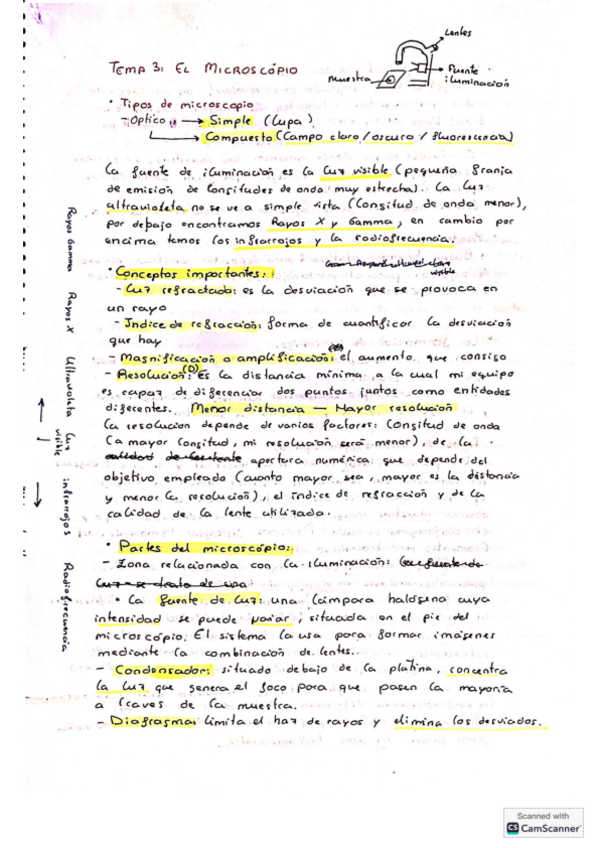 TEMA 3: EL MICROSCÓPIO
Lentes
Fuente
iluminación
muestra
• Tipos de microscopio
- Optico → Simple (Lupa)
→ Compuesto (Campo claro/oscuro/fluorescencia)
La fuente de iluminación es la luz visible (pequeña franja
de emisión de longitudes de onda muy estrecha). La luz
ultravioleta no se ve a simple vista (longitud de onda menor),
por debajo encontramos Rayos X y Gamma, en cambio por
encima temos los infrarrojos y la radiofrecuencia.
visible
• Conceptos importantes:
- Luz refractada: es la desviación que se provoca en
un rayo
- Indice de refracción: forma de cuantificar la desviación
que hay
- Magnificación o amplificación: el aumento que consigo
- Resolución: (D) Es la distancia mínima a la cual mi equipo
es capaz de diferenciar dos puntos juntos como entidades
diferentes. Menor distancia — Mayor resolución
La resolución depende de varios factores: Longitud de onda
(a mayor longitud, mi resolución será menor), de la
calidad de la fuente apertura numérica que depende del
objetivo empleado (cuanto mayor sea, mayor es la distancia
y menor la resolución), el índice de refracción y de la
calidad de la lente utilizada.
• Partes del microscópio:
- Zona relacionada con la iluminación: La fuente de
luz se trata de una
• La fuente de luz: una lámpara halógena cuya
intensidad se puede variar, situada en el pie del
microscópio. El sistema la usa para formar imágenes
mediante la combinación de lentes.
- Condensador: situado debajo de la platina, concentra
la luz que genera el foco para que pasen la mayoría
a traves de la muestra.
- Diafragma: limita el haz de rayos y elimina los desviados.
Rayos Gamma
Rayos X
Ultravioleta
Luz
visible
infrarrojos
Radiofrecuencia
Scanned with
CS CamScanner